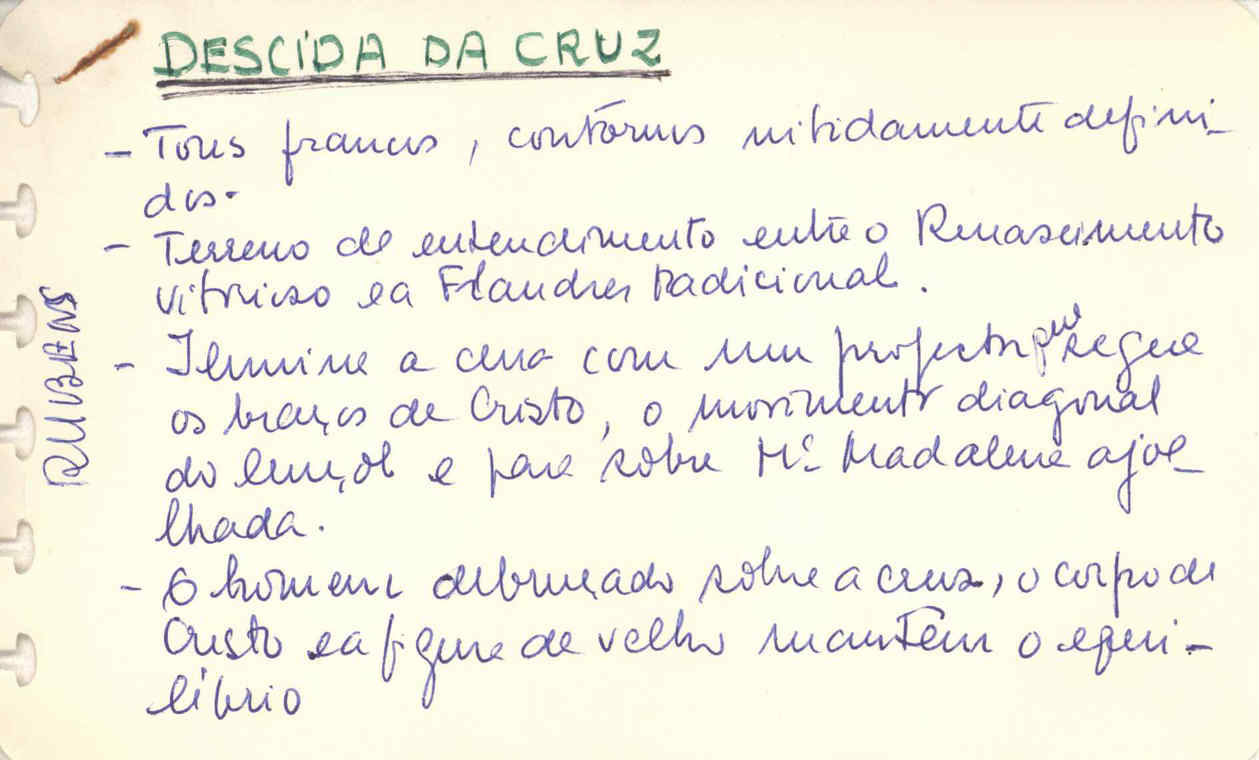 DESCIDA DA CRUZ
- Tons francos, contôrnos nitidamente defini-
dos.
- Terreno de entendimento entre o Renascimento
vitorioso e a Flandres tradicional.
- Ilumina a cena com um projector que segue
os braços de Cristo, o movimento diagonal
do lençol e para sobre Mª Madalena ajoe-
lhada.
- O homem debruçado sobre a cruz, o corpo de
Cristo e a figura de velho mantêm o equi-
líbrio
RUBENS